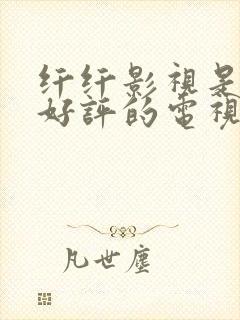 纤纤影視是
好評的電視
凡世塵